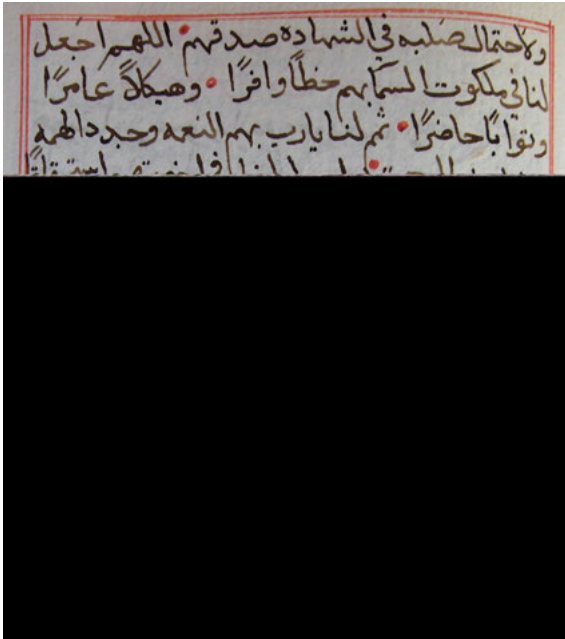 ولاحتمال صلبه في الشهاده صدقهم • اللهم اجعل
لنا في ملكوت السما بهم حظاً وافرًا • وهيكلاً عامرًا
وثوابًا حاضرًا • ثم لنا يا رب بهم النعمه وجدد الهمه